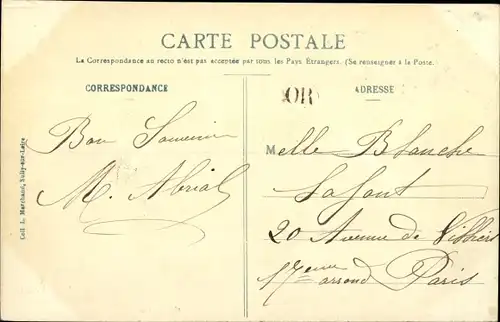 CARTE POSTALE
La Correspondance au recto n'est pas acceptée par tous les Pays Étrangers. (Se renseigner à la Poste.
CORRESPONDANCE
OR
ADRESSE
Bon Souvenir
M. Abrial
Melle Blanche
Lafont
20 Avenue de Villiers
17eme arrond Paris
Coll. L. Marchand, Sully-sur-Loire